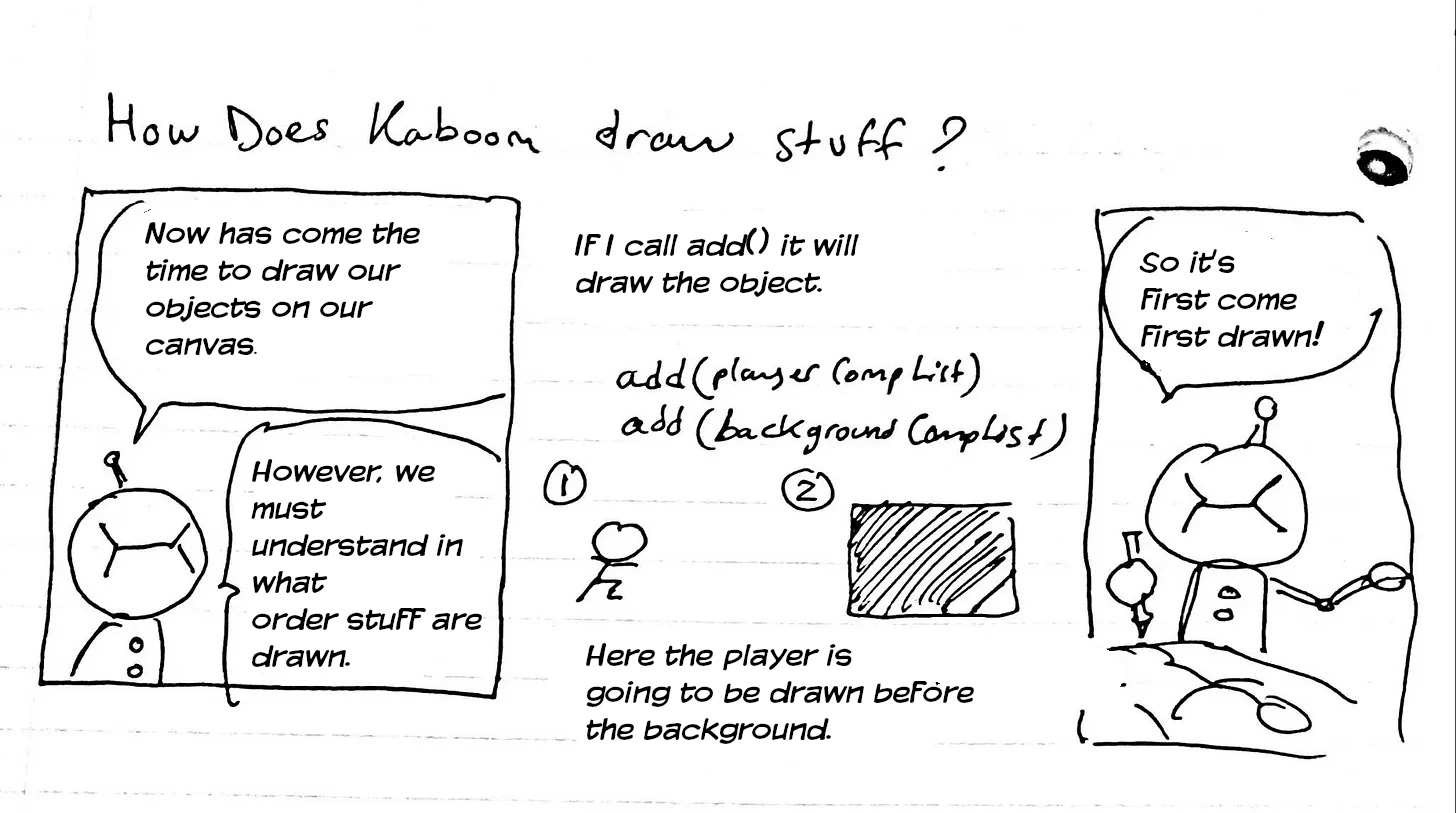 How Does Kaboom draw stuff?
Now has come the
time to draw our
objects on our
canvas.
However, we
must
understand in
what
order stuff are
drawn.
If I call add() it will
draw the object.
add(player CompList)
add (background CompList)
1
2
Here the player is
going to be drawn before
the background.
So it's
first come
first drawn!